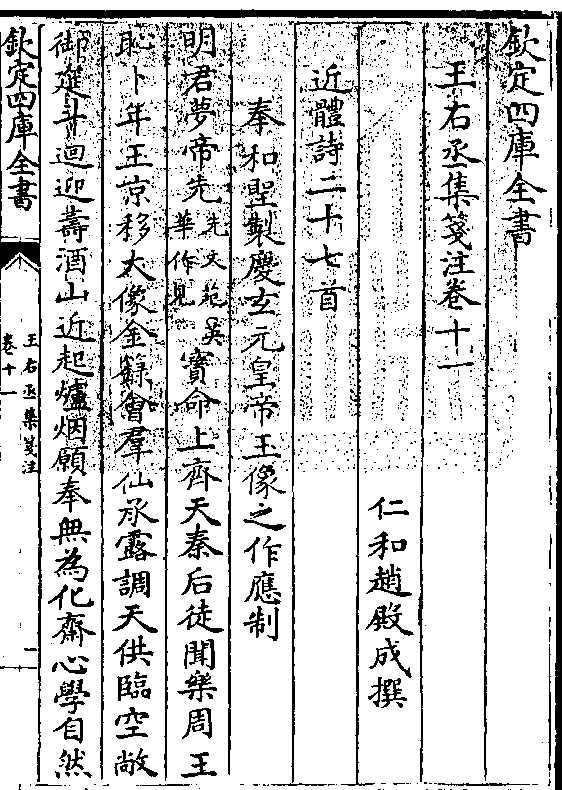 欽定四庫全書
王右丞集箋注卷十一
仁和趙殿成撰
近體詩二十七首
奉和聖製慶玄元皇帝玉像之作應制
明君夢帝先先文苑英華作見寳命上齊天秦后徒聞樂周王
恥卜年玉京移大像金籙會羣仙承露調天供臨空敞
御筵斗迴迎壽酒山近起爐烟願奉無為化齋心學自然
欽定四庫全書
王右丞集箋注
卷十一
一